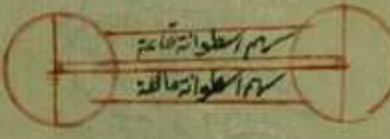 سهم اسطوانة قائمة
سهم اسطوانة مائلة